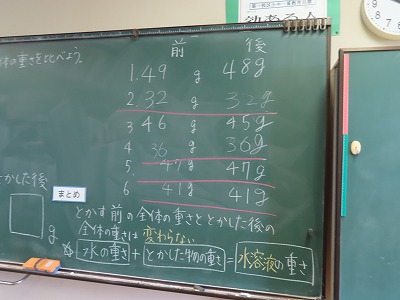 体の重さを比べよう。
前 後
1. 49 g 48g
2. 32 g 32g
3 46 g 45g
4 36 g 36g
5. 47g 47g
6 41g 41g
とかした後
まとめ
g
とかす前の全体の重さととかした後の
全体の重さは変わらない
☆ 水の重さ + とかした物の重さ = 水溶液の重さ
9
8
7
6